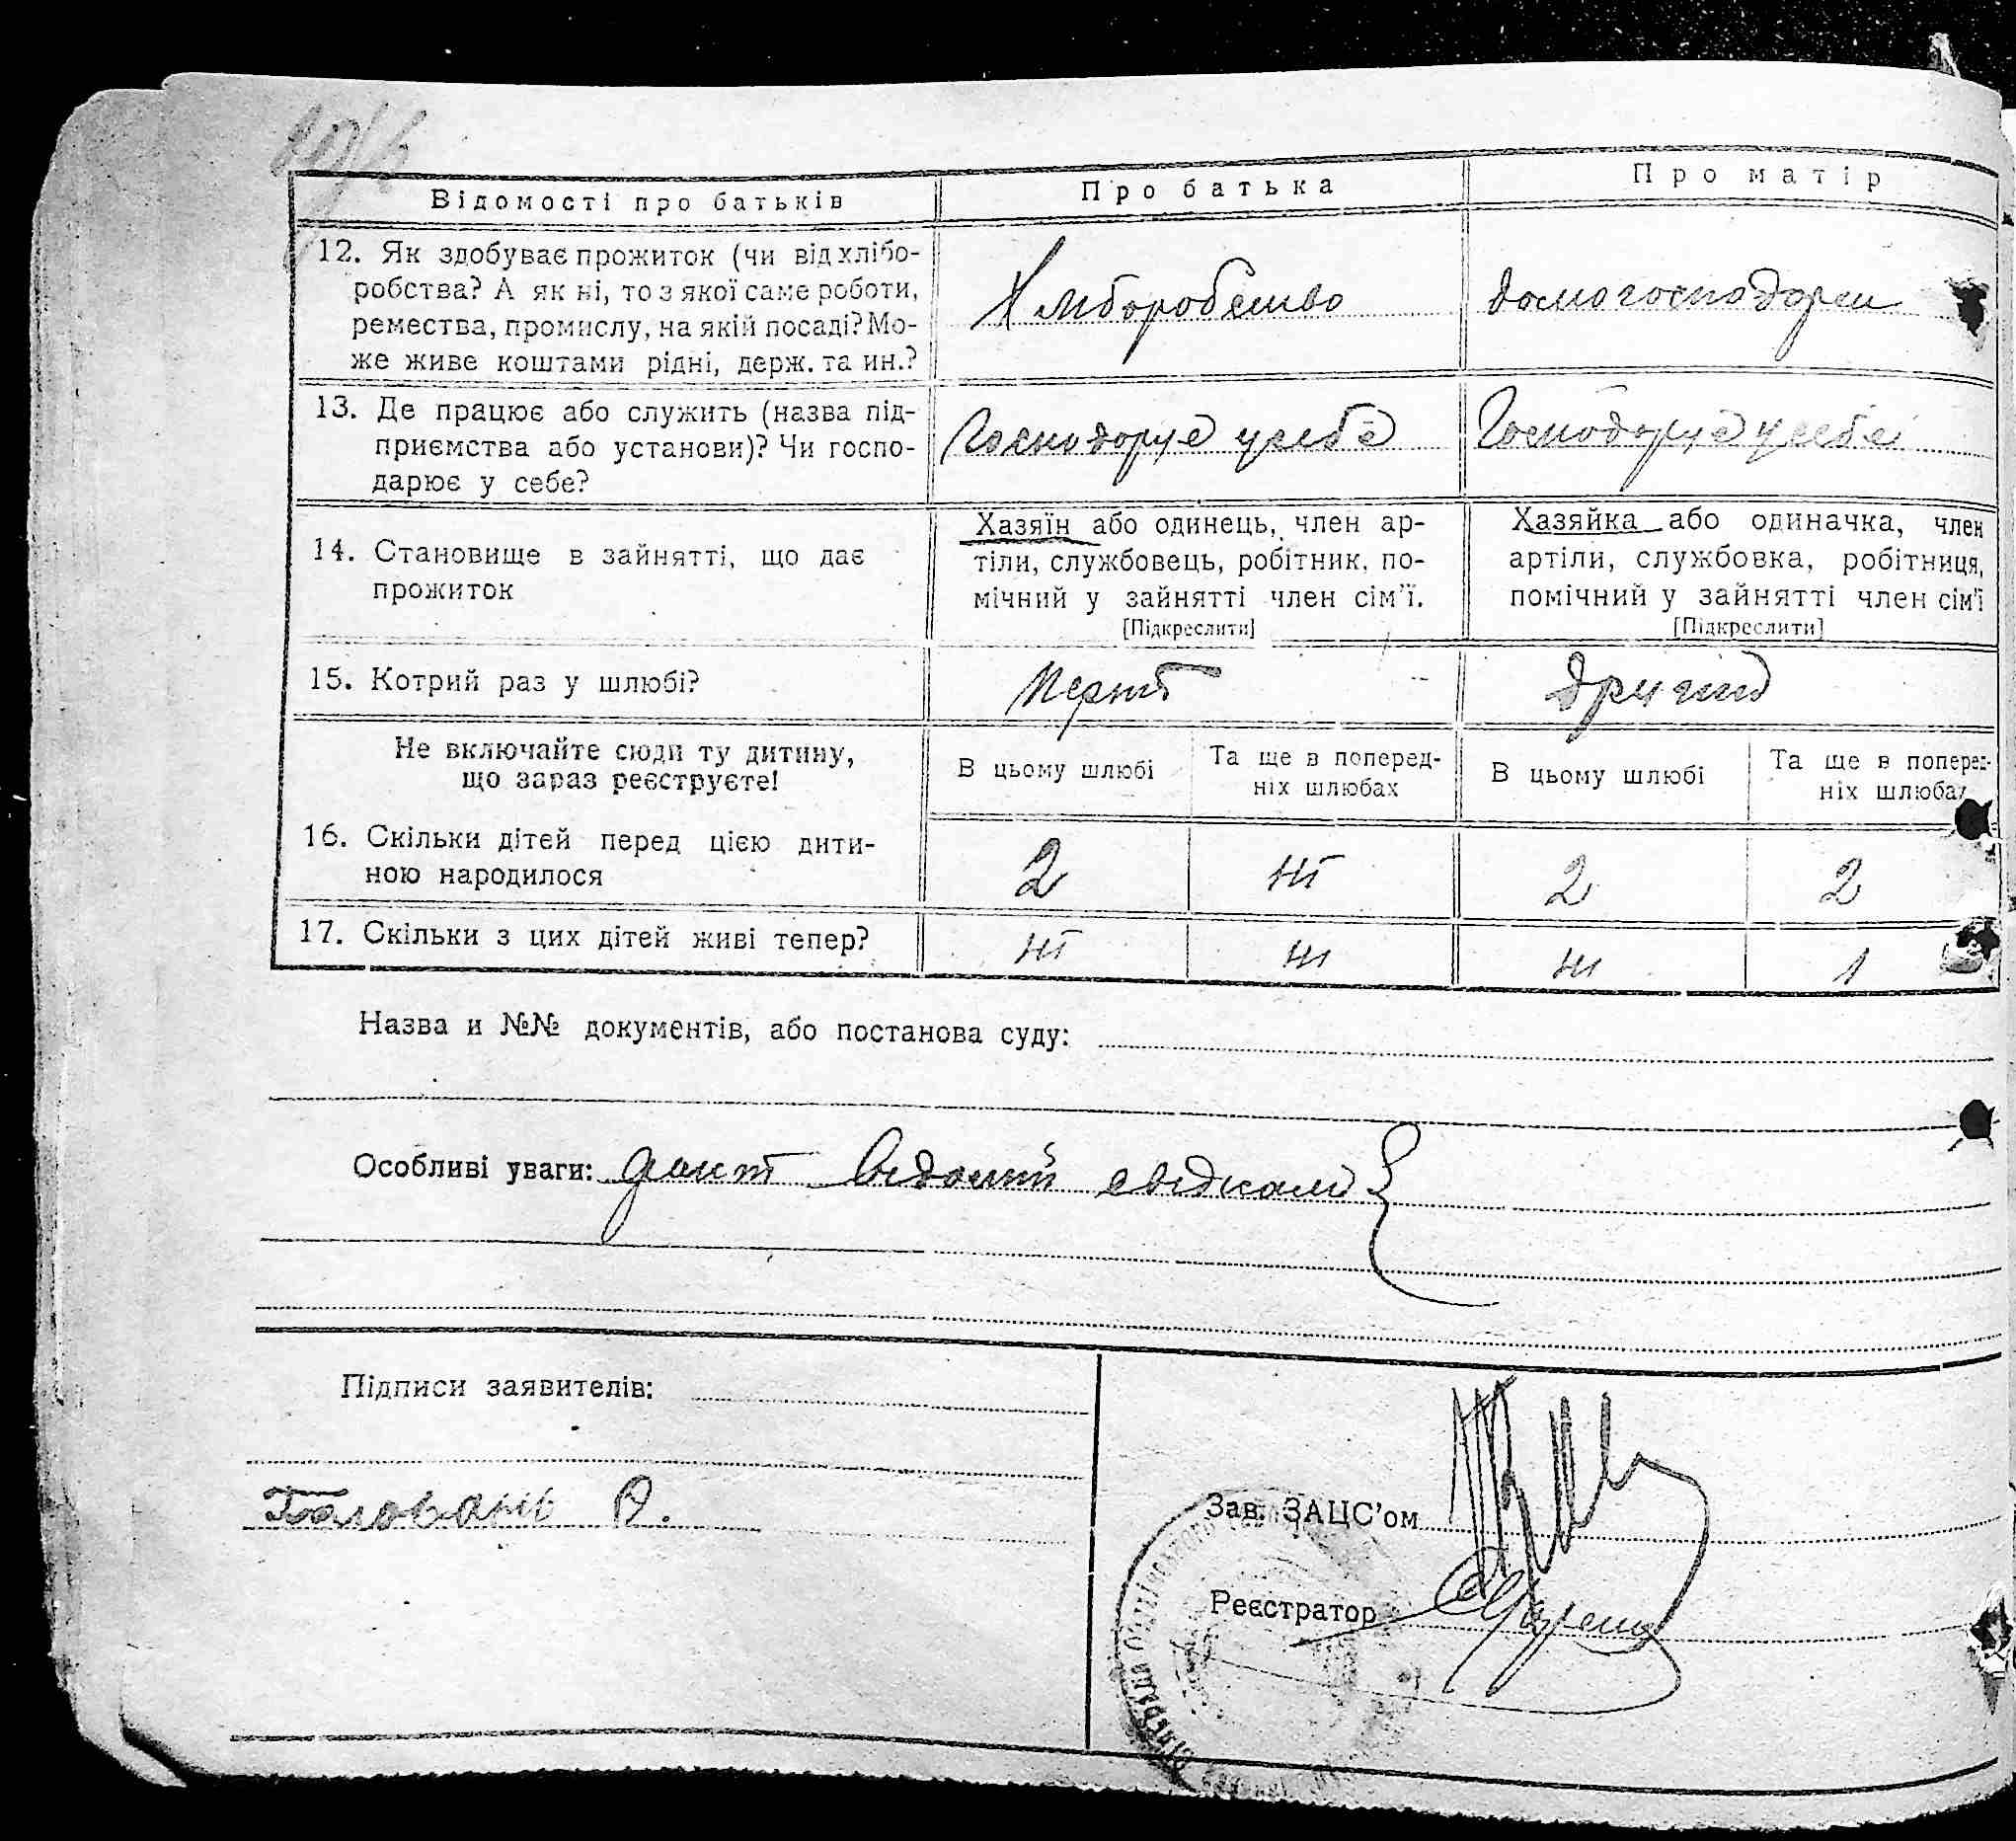 Відомості про батьків
Про батька
Про матір
12. Як здобуває прожиток (чи від хлібо-
робства? А як ні, то з якої саме роботи,
ремества, промислу, на якій посаді? Мо-
же живе коштами рідні, держ. та ин.?
Хліборобство
домогосподарки
13. Де працює або служить (назва під-
приємства або установи)? Чи госпо-
дарює у себе?
Господарує у себе
Господарує у себе
14. Становище в зайнятті, що дає
прожиток
Хазяїн або одинець, член ар-
тіли, службовець, робітник, по-
мічний у зайнятті член сім'ї.
[Підкреслити]
Хазяйка або одиначка, член
артіли, службовка, робітниця,
помічний у зайнятті член сім'ї
[Підкреслити]
15. Котрий раз у шлюбі?
другий
Не включайте сюди ту дитину,
що зараз реєструєте!
В цьому шлюбі
Та ще в поперед-
ніх шлюбах
В цьому шлюбі
Та ще в поперед-
ніх шлюбах
16. Скільки дітей перед цією дити-
ною народилося
2
ні
2
2
17. Скільки з цих дітей живі тепер?
ні
ні
ні
1
Назва и №№ документів, або постанова суду:
Особливі уваги: факт відомий свідкам
Підписи заявителів:
Головань
Зав. ЗАЦС'ом
Реєстратор